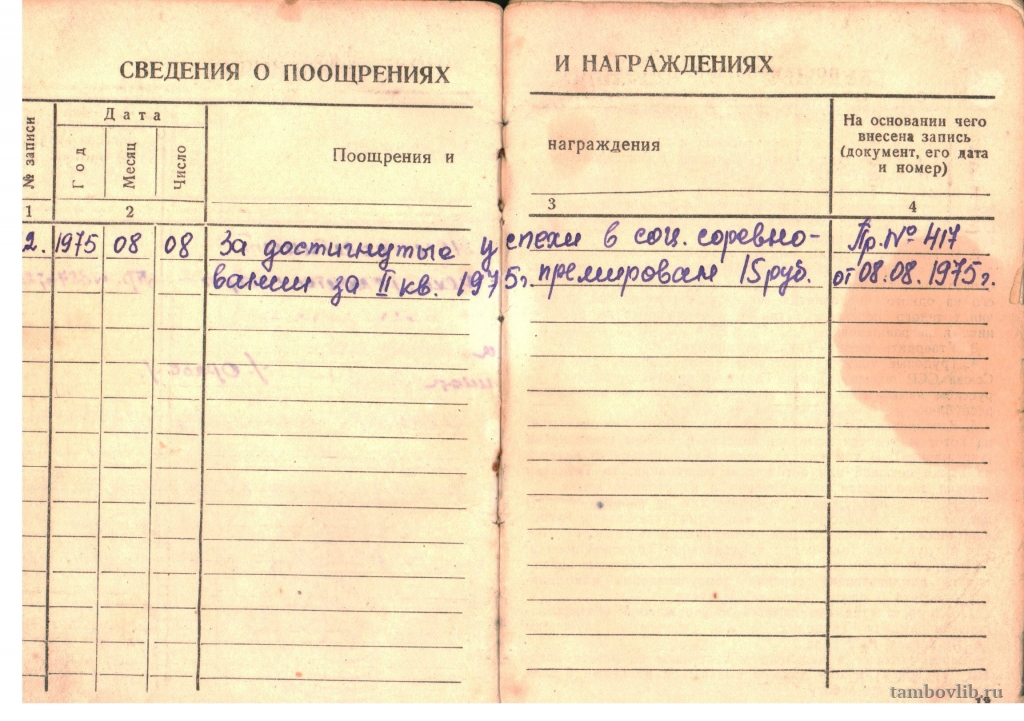 СВЕДЕНИЯ О ПООЩРЕНИЯХ И НАГРАЖДЕНИЯХ
№ записи
Дата
Год
Месяц
Число
Поощрения и награждения
На основании чего
внесена запись
(документ, его дата
и номер)
1 2 3 4
2. 1975 08 08 За достигнутые успехи в соц. соревно- Пр. № 417
вании за II кв. 1975г. премирован 15 руб. от 08.08.1975г.
tambovlib.ru